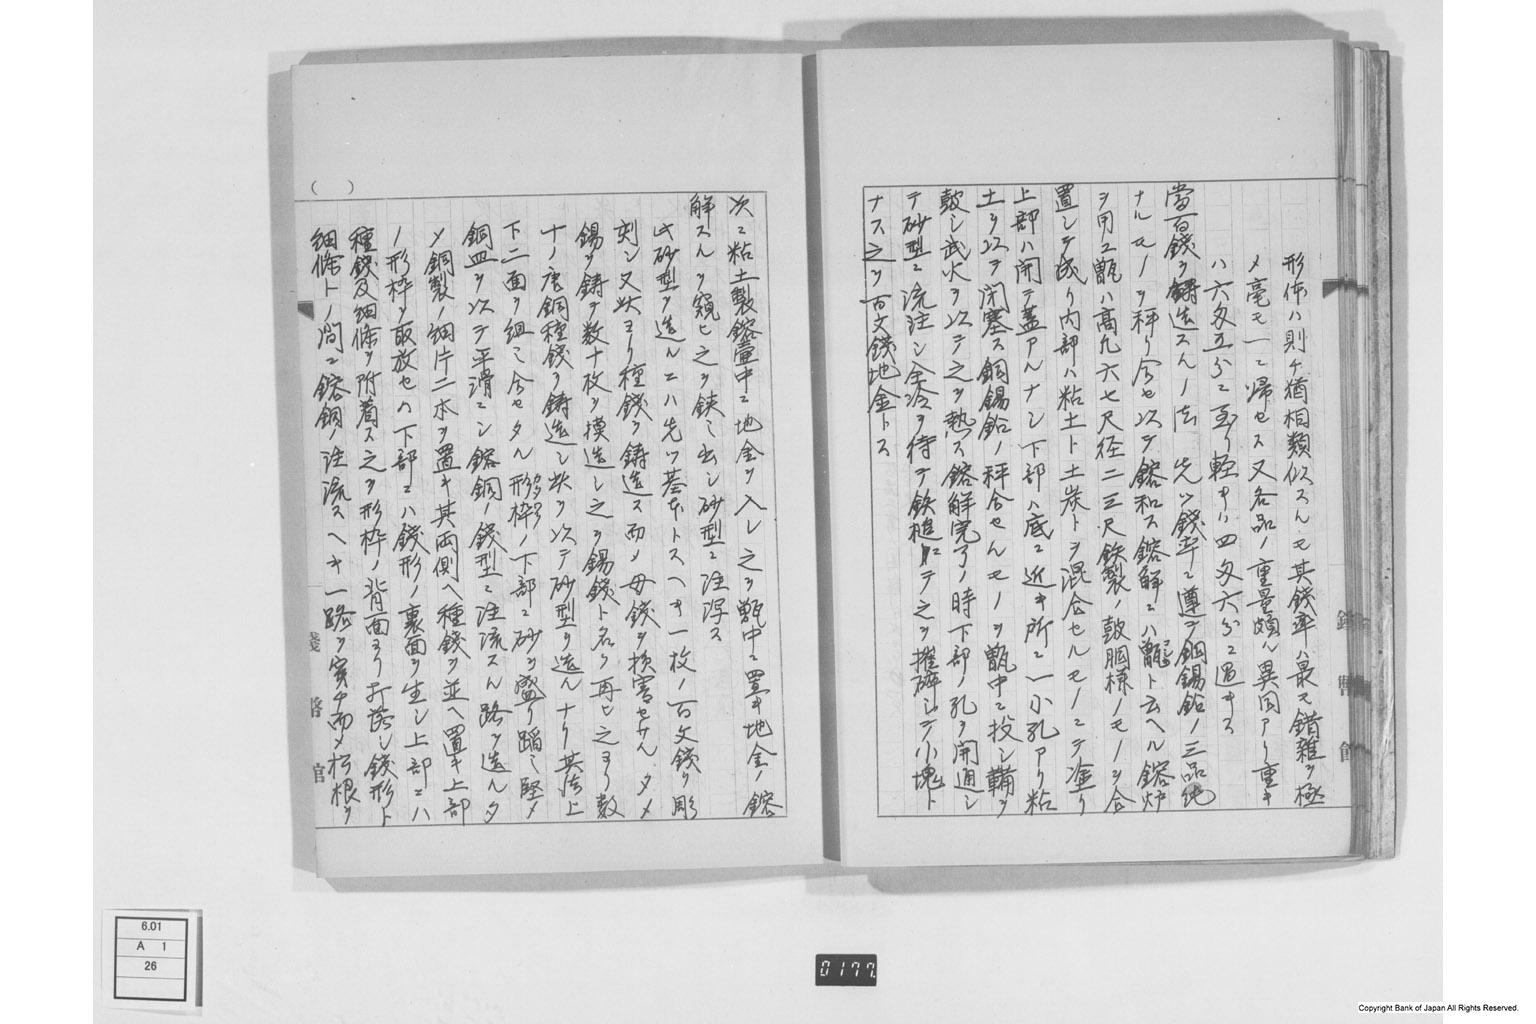 形体ハ則チ猶相類似スルモ其銭率ハ最モ錯雑ヲ極
メ毫モ一ニ帰セス又各品ノ重量頗ル異同アリ重キ
ハ六匁五分ニ至リ軽キハ四匁六分ニ過キス
當百錢ヲ鑄造スルノ法 先ツ錢率ニ遵テ銅錫鉛ノ三品純
ナルモノヲ秤リ合セ以テ鎔和ス鎔解ニハ甑ト云ヘル鎔炉
ヲ用ユ甑ハ高凡六七尺径二三尺鉄製ノ鼓胴様ノモノヲ合
置シテ成リ内部ハ粘土ト土炭トヲ混合セルモノニテ塗リ
上部ハ開テ蓋アルナシ下部ハ底ニ近キ所ニ一小孔アリ粘
土ヲ以テ閉塞ス銅錫鉛ノ秤合セルモノヲ甑中ニ投シ鞴ヲ
鼓シ武火ヲ以テ之ヲ熱ス鎔解完了ノ時下部ノ孔ヲ開通シ
テ砂型ニ流注シ全冷ヲ待テ鉄槌ニテ之ヲ摧碎シテ小塊ト
ナス之ヲ百文錢地金トス
錢幣館
次ニ粘土製鎔壷中ニ地金ヲ入レ之ヲ甑中ニ置キ地金ノ鎔
解スルヲ窺ヒ之ヲ鋏ミ出シ砂型ニ注瀉ス
此砂型ヲ造ルニハ先ツ基本トスヘキ一枚ノ百文錢ヲ彫
刻シ又此ヨリ種錢ヲ鋳造ス而メ母錢ヲ損害セサルタメ
錫ヲ鋳テ数十枚ヲ摸造シ之ヲ錫錢ト名ク再ヒ之ヨリ数
十ノ唐銅種錢ヲ鋳造シ此ヲ以テ砂型ヲ造ルナリ其法上
下二面ヲ組ミ合セタル形枠ノ下部ニ砂ヲ盛リ蹈ミ堅メ
銅皿ヲ以テ平滑ニシ鎔銅ノ錢型ニ注流スル路ヲ造ルタ
メ銅製ノ細片二本ヲ置キ其両側ヘ種錢ヲ並ヘ置キ上部
ノ形枠ヲ取放セハ下部ニハ錢形ノ裏面ヲ生シ上部ニハ
種錢及細條ヲ附着ス之ヲ形枠ノ背面ヨリ打落シ錢形ト
細條トノ間ニ鎔銅ノ注流スヘキ一路ヲ穿チ而メ松根ヲ
( )
錢幣館
6.01
A 1
26
0177
Copyright Bank of Japan All Rights Reserved.